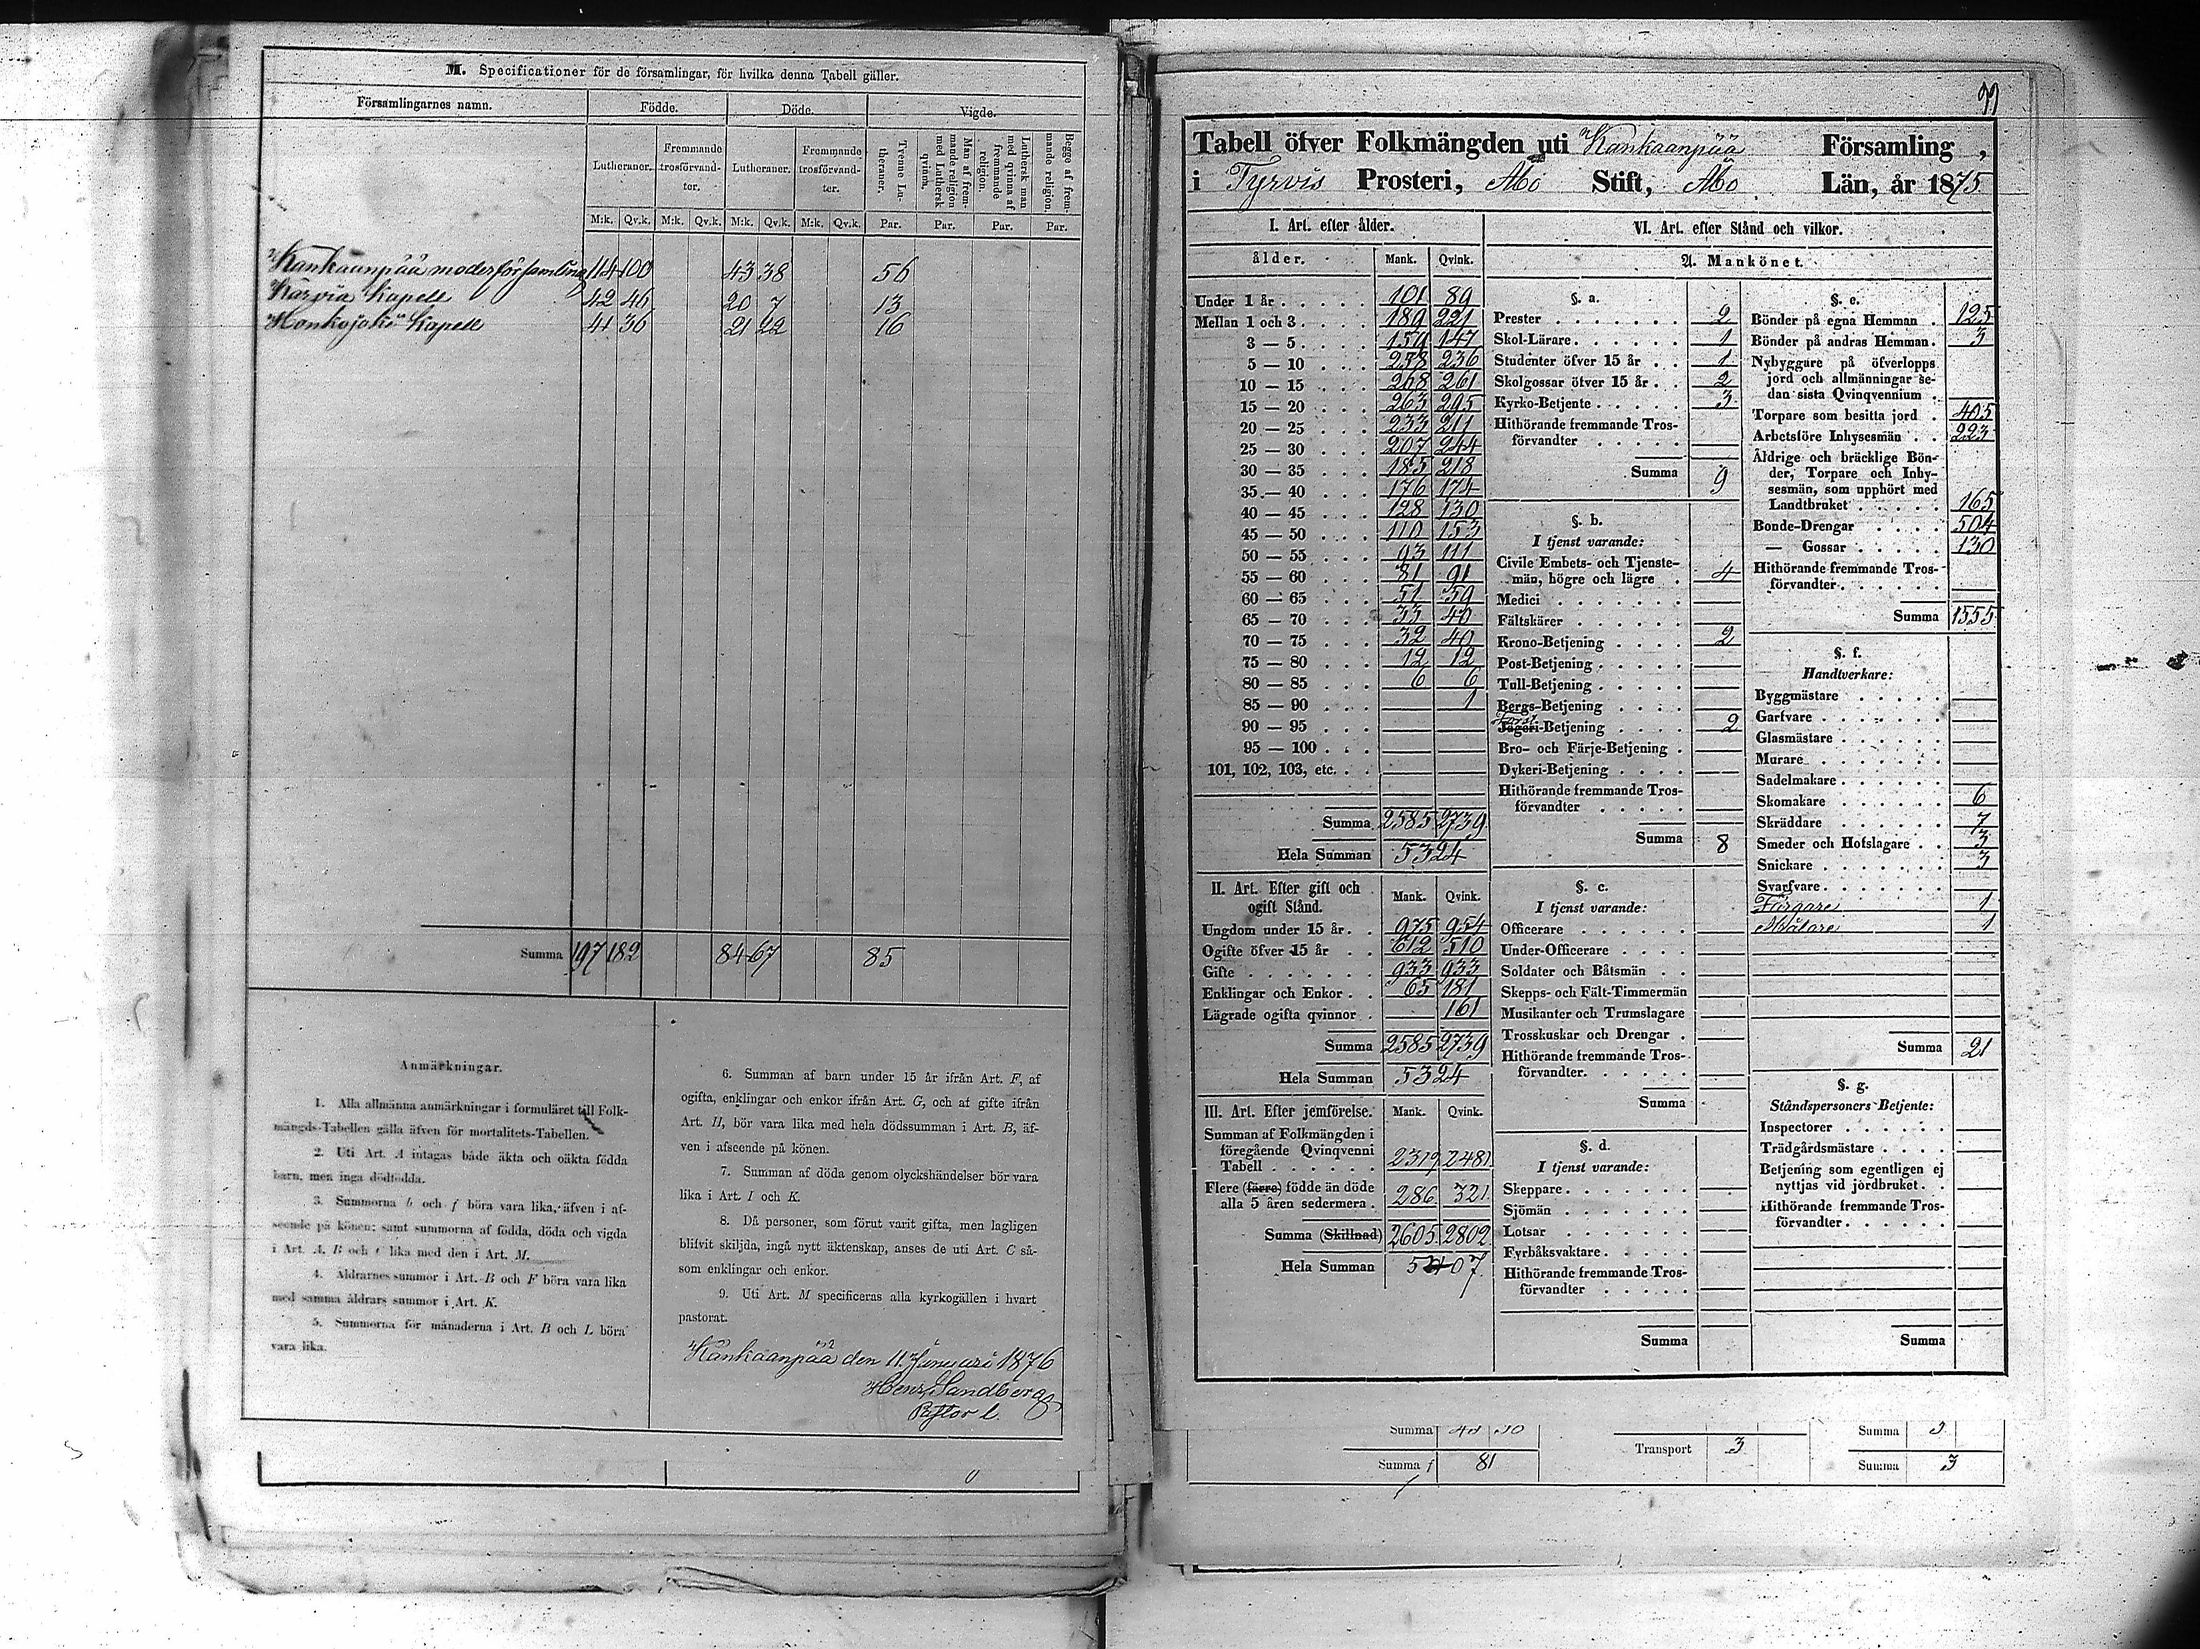 M. Specificationer för de församlingar, för hvilka denna Tabell gäller.
Församlingarnes namn. Födde. Döde. Vigde.
Lutheraner. Fremmande trosförvandter. Lutheraner. Fremmande trosförvandter. Trenne Lutheraner. Man af fremmande religion med Luthersk qvinna. Luthersk man med qvinna af fremmande religion. Begge af fremmande religion.
M:k. Qv.k. M:k. Qv.k. M:k. Qv.k. M:k. Qv.k. Par. Par. Par. Par.
Kankaanpää moderförsamling 114 100 43 38 56
Karvia Kapell 42 46 20 7 13
Honkajoki Kapell 41 36 21 22 16
Summa 197 182 84 67 85
Anmärkningar.
1. Alla allmänna anmärkningar i formuläret till Folk-
mängds-Tabellen gälla äfven för mortalitets-Tabellen.
2. Uti Art. A intagas både äkta och oäkta födda
barn, men inga dödfödda.
3. Summorna b och f böra vara lika, äfven i af-
seende på könen; samt summorna af födda, döda och vigda
i Art. A, B och C lika med den i Art. M.
4. Åldrarnes summor i Art. B och F böra vara lika
med samma åldrars summor i Art. K.
5. Summorna för månaderna i Art. B och L böra
vara lika.
6. Summan af barn under 15 år ifrån Art. F, af
ogifta, enklingar och enkor ifrån Art. G, och af gifte ifrån
Art. H, bör vara lika med hela dödssumman i Art. B, äf-
ven i afseende på könen.
7. Summan af döda genom olyckshändelser bör vara
lika i Art. I och K.
8. Då personer, som förut varit gifta, men lagligen
blifvit skiljda, ingå nytt äktenskap, anses de uti Art. C så-
som enklingar och enkor.
9. Uti Art. M specificeras alla kyrkogällen i hvart
pastorat.
Kankaanpää den 11 Januari 1876
Henr. Sandberg
Pastor l.
99
Tabell öfver Folkmängden uti Kankaanpää Församling,
i Tyrvis Prosteri, Åbo Stift, Åbo Län, år 1875
I. Art. efter ålder.
ålder. Mank. Qvink.
Under 1 år 101 89
Mellan 1 och 3 189 221
3 — 5 150 147
5 — 10 238 236
10 — 15 268 261
15 — 20 263 295
20 — 25 233 211
25 — 30 207 244
30 — 35 185 218
35 — 40 176 174
40 — 45 128 130
45 — 50 110 153
50 — 55 93 111
55 — 60 81 91
60 — 65 51 59
65 — 70 33 40
70 — 75 32 40
75 — 80 12 12
80 — 85 6 6
85 — 90 1
90 — 95
95 — 100
101, 102, 103, etc.
Summa 2585 2739
Hela Summan 5324
II. Art. Efter gift och ogift Stånd. Mank. Qvink.
Ungdom under 15 år 975 954
Ogifte öfver 15 år 612 510
Gifte 933 933
Enklingar och Enkor 65 181
Lägrade ogifta qvinnor 161
Summa 2585 2739
Hela Summan 5324
III. Art. Efter jemförelse. Mank. Qvink.
Summan af Folkmängden i
föregående Qvinqvenni
Tabell 2319 2481
Flere (färre) födde än döde
alla 5 åren sedermera 286 321
Summa (Skillnad) 2605 2802
Hela Summan 5407
VI. Art. efter Stånd och vilkor.
A. Mankönet.
§. a.
Prester 2
Skol-Lärare 1
Studenter öfver 15 år 1
Skolgossar öfver 15 år 2
Kyrko-Betjente 3
Hithörande fremmande Tros-
förvandter
Summa 9
§. b.
I tjenst varande:
Civile Embets- och Tjenste-
män, högre och lägre 4
Medici
Fältskärer
Krono-Betjening 2
Post-Betjening
Tull-Betjening
Bergs-Betjening
Forst
Jägeri-Betjening 2
Bro- och Färje-Betjening
Dykeri-Betjening
Hithörande fremmande Tros-
förvandter
Summa 8
§. c.
I tjenst varande:
Officerare
Under-Officerare
Soldater och Båtsmän
Skepps- och Fält-Timmermän
Musikanter och Trumslagare
Trosskuskar och Drengar
Hithörande fremmande Tros-
förvandter
Summa
§. d.
I tjenst varande:
Skeppare
Sjömän
Lotsar
Fyrbåksvaktare
Hithörande fremmande Tros-
förvandter
Summa
§. e.
Bönder på egna Hemman 125
Bönder på andras Hemman 3
Nybyggare på öfverlopps
jord och allmänningar se-
dan sista Qvinqvennium
Torpare som besitta jord 405
Arbetsföre Inhysesmän 223
Åldrige och bräcklige Bön-
der, Torpare och Inhy-
sesmän, som upphört med
Landtbruket 165
Bonde-Drengar 504
— Gossar 130
Hithörande fremmande Tros-
förvandter
Summa 1555
§. f.
Handtverkare:
Byggmästare
Garfvare
Glasmästare
Murare
Sadelmakare
Skomakare 6
Skräddare 7
Smeder och Hofslagare 3
Snickare 3
Svarfvare
Färgare 1
Målare 1
Summa 21
§. g.
Ståndspersoners Betjente:
Inspectorer
Trädgårdsmästare
Betjening som egentligen ej
nyttjas vid jordbruket
Hithörande fremmande Tros-
förvandter
Summa
Summa Summa
Transport 3
Summa 81 Summa 3